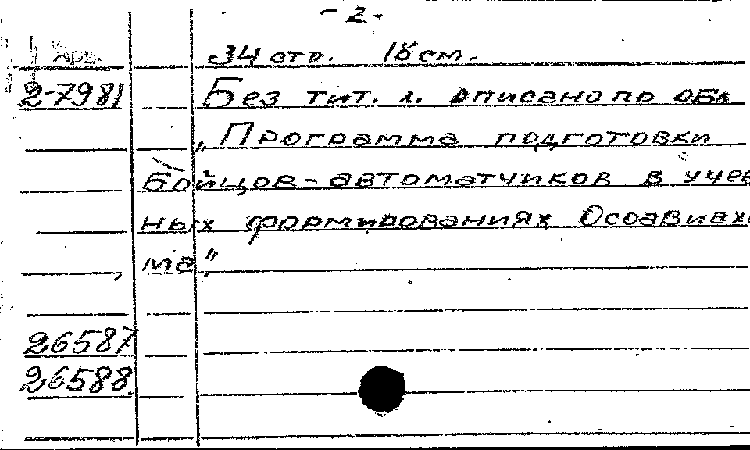 - 2 -
34 стр. 18 см.
2-7981 Без тит. л. описано по обл
„Программа подготовки
бойцов-автоматчиков в учеб
ных формированиях Осоавиахи
ма"
26587
26588